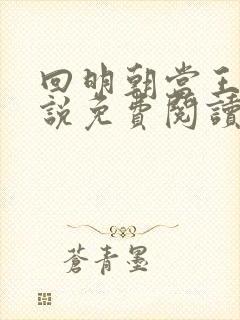 回明朝当王
說免費閱讀
蒼青墨